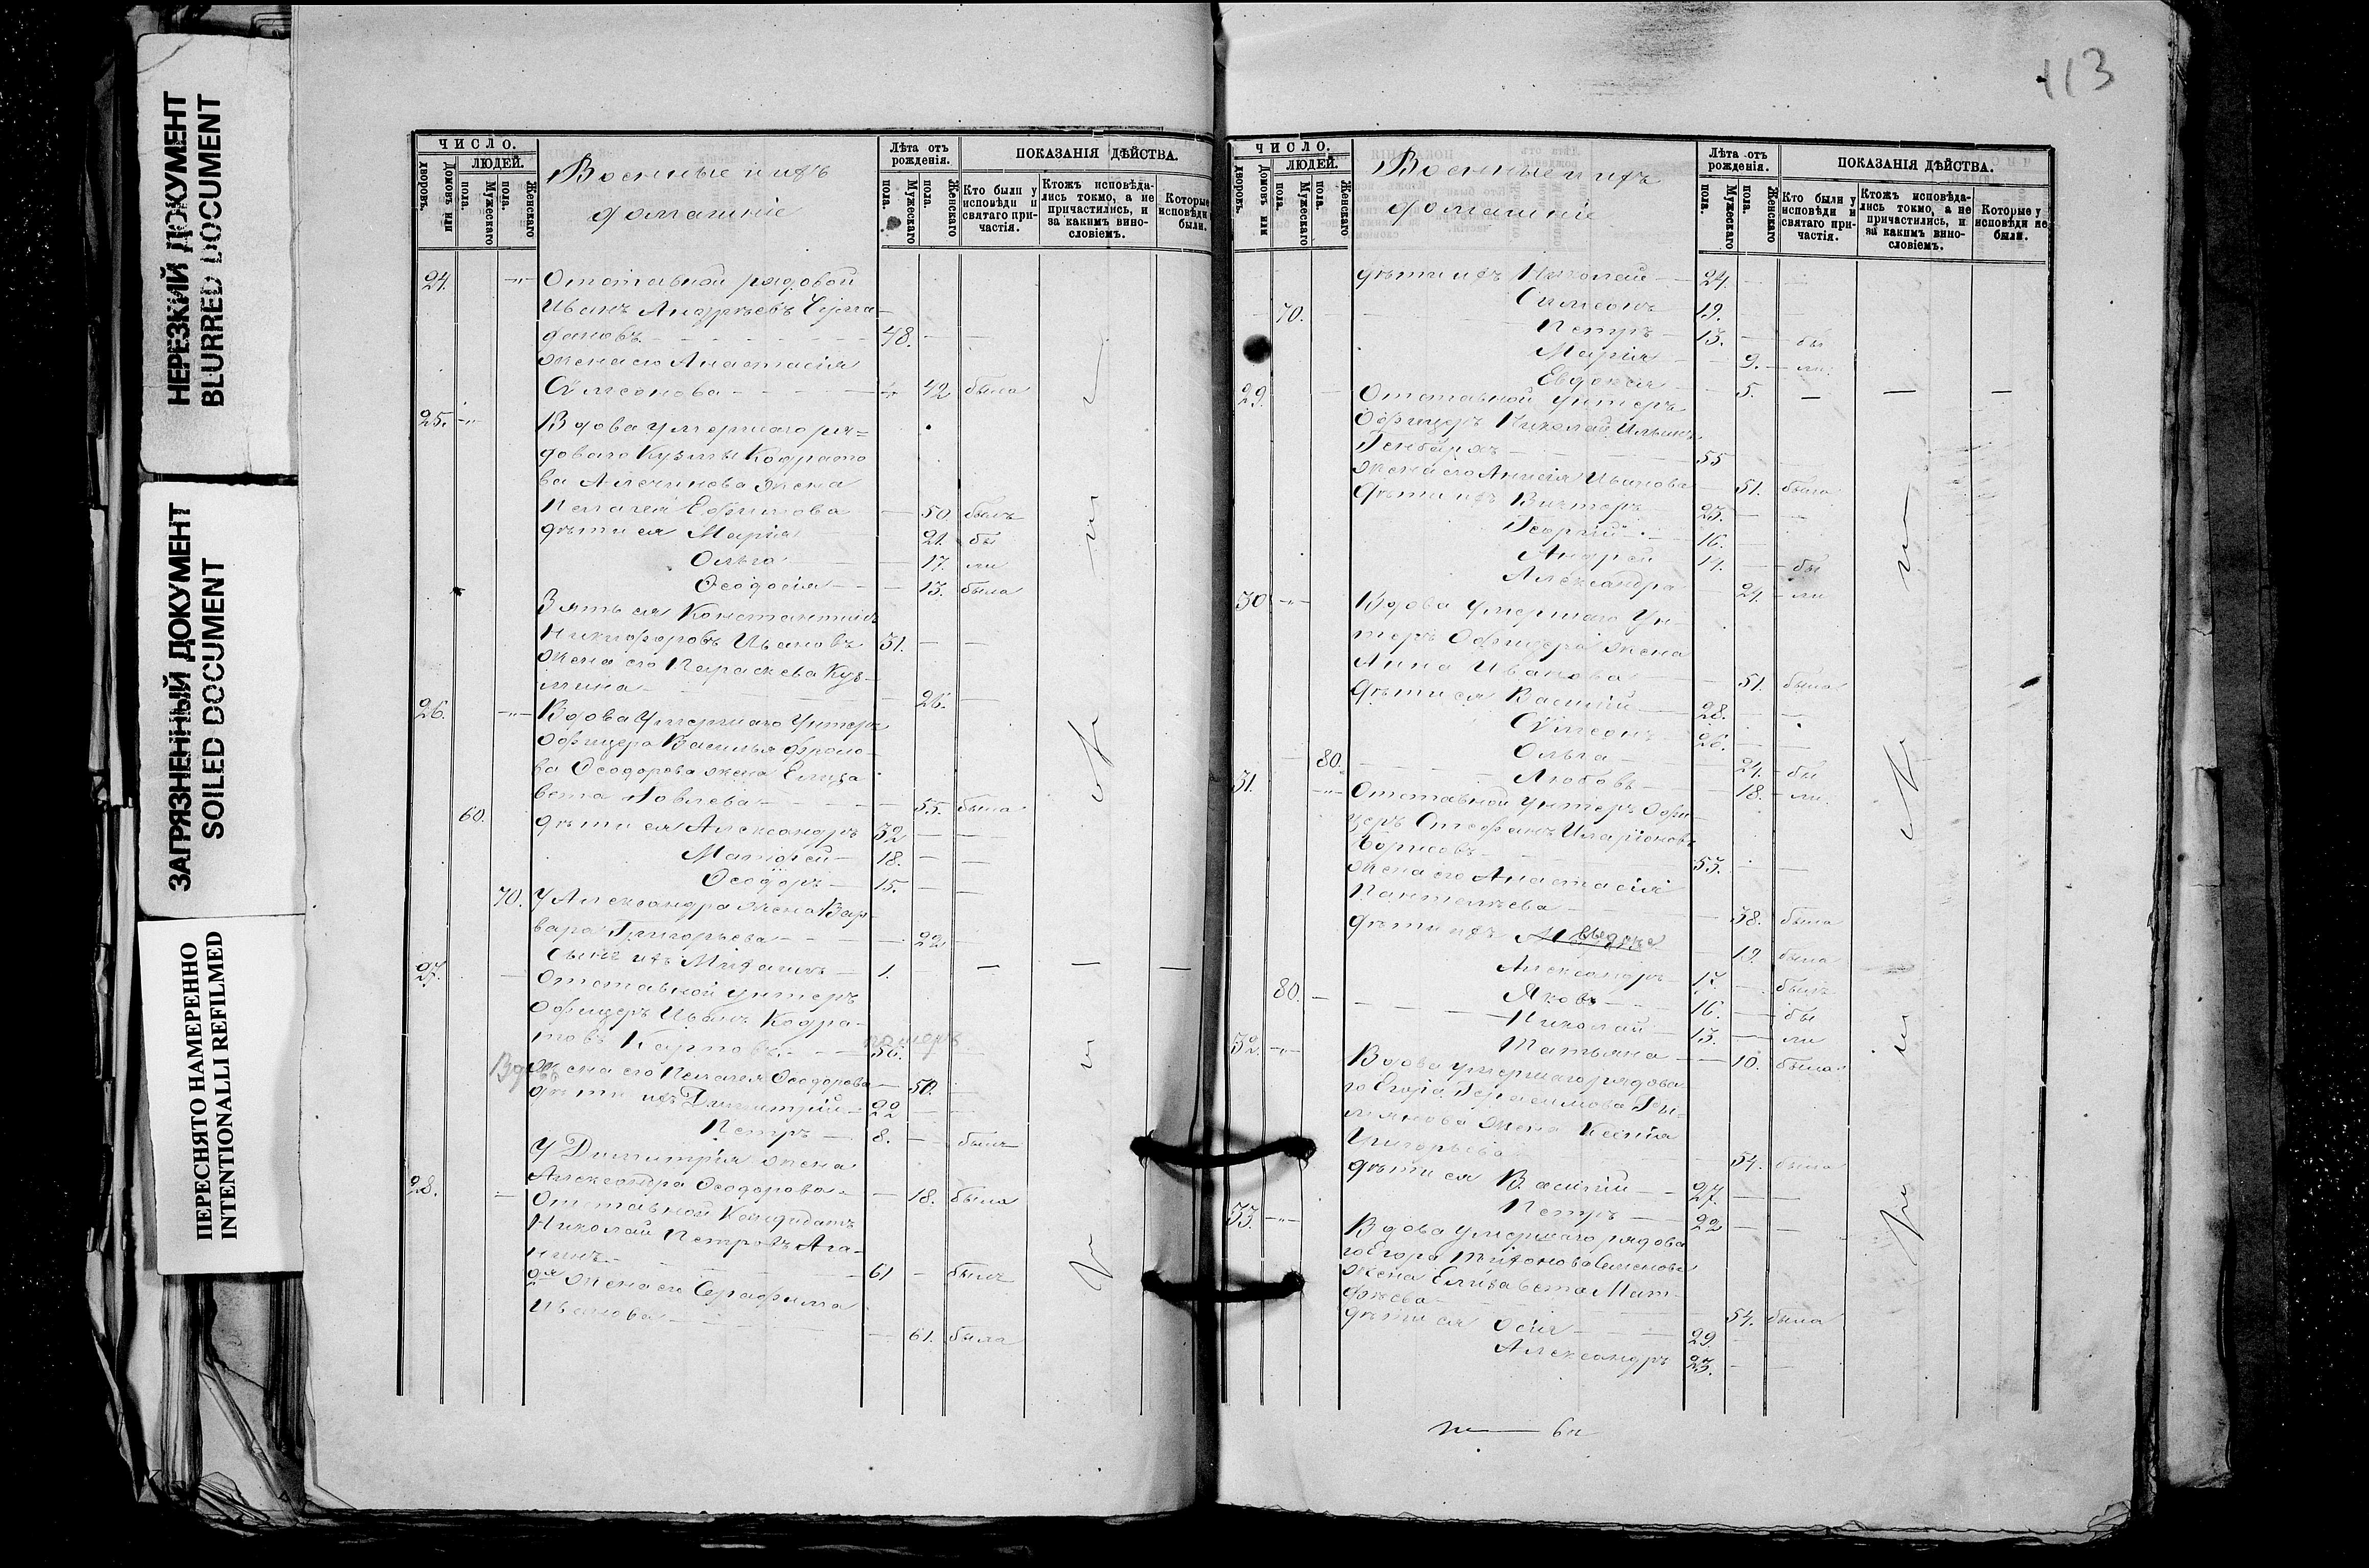 НЕРЕЗКИЙ ДОКУМЕНТ
BLURRED DOCUMENT
ЗАГРЯЗНЕННЫЙ ДОКУМЕНТ
SOILED DOCUMENT
ПЕРЕСНЯТО НАМЕРЕННО
INTENTIONALLI REFILMED
ЧИСЛО.
ЛЮДЕЙ.
Домовъ или дворовъ.
Мужескаго пола.
Женскаго пола.
Военные и ихъ
домашніе
Лѣта отъ рожденія.
Мужескаго пола.
Женскаго пола.
ПОКАЗАНІЯ ДѢЙСТВА.
Кто были у исповѣди и святаго причастія.
Ктожъ исповѣдались токмо, а не причастились, и за какимъ винословіемъ.
Которые исповѣди были.
24. Отставной рядовой
Иванъ Андреевъ
дановъ 48.
жена его Анастасія
Симеонова 42 была
25. Вдова умершаго ря=
доваго Кузьмы Кодрато
ва жена
Пелагея Ефимова 50 былъ
дѣти ея Марія 21. бы
Ольга 17. ли
Ѳеодосія 13. была
Зять ея Константинъ
Никифоровъ Ивановъ 31.
жена его Параскева Кузь
мина 26.
26. Вдова умершаго Унтеръ
Офицера Василья Фроло
ва Ѳеодорова жена Елиза
вета Іовлева 55. была
60. дѣти ея Александръ 32
Матѳей 18.
Ѳеодоръ 15.
70. У Александра жена Вар
вара Григорьева 22
сынъ ихъ Михаилъ 1.
27. Отставной унтеръ
Офицеръ Иванъ Кодра-
товъ Карповъ 56. померъ
Вдова жена его Пелагея Ѳеодорова 50.
дѣти ихъ Димитрій 22
Петръ 8. былъ
У Димитрія жена
Александра Ѳеодорова 18. была
28. Отставной Кандидатъ
Николай Петровъ Ага-
61 былъ
жена его Серафима
Иванова 61. была
113
ЧИСЛО.
ЛЮДЕЙ.
Домовъ или дворовъ.
Мужескаго пола.
Женскаго пола.
Военные и ихъ
домашніе
Лѣта отъ рожденія.
Мужескаго пола.
Женскаго пола.
ПОКАЗАНІЯ ДѢЙСТВА.
Кто были у исповѣди и святаго причастія.
Ктожъ исповѣдались токмо, а не причастились, и за какимъ винословіемъ.
Которые у исповѣди не были.
дѣти ихъ Николай 24.
Симеонъ 19.
70. Петръ 13. бы
Марія 9. ли
Евдокія 5.
29. Отставной унтеръ
Офицеръ Николай Ильинъ
55
жена его Анисія Иванова 51. была
дѣти ихъ Викторъ 23.
Георгій 16.
Андрей 14. бы
Александра 24. ли
30 Вдова умершаго Ун-
теръ Офицера жена
Анна Иванова 51. была
дѣти ея Василій 28.
Симеонъ 26.
80. Ольга 24. бы
Любовь 18. ли.
31. Отставной унтеръ Офи-
церъ Стефанъ Иларіоновъ
Борисовъ 53.
жена его Анастасія
Пантелѣева 38. была
дѣти ихъ 19. была
Александръ 17. былъ
80. Яковъ 16. бы
Николай 13. ли
Татьяна 10. была
32. Вдова умершаго рядова
го Егора Герасимова
жена Ксенія
Григорьева 54. была
дѣти ея Василій 27.
Петръ 22
33. Вдова умершаго рядова
го Егора Тихонова Семенова
жена Елизавета Мат-
фѣева 54. была
дѣти ея Осія 29.
Александръ 23.